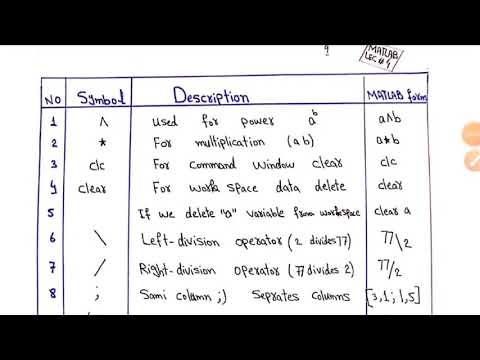 9
MATLAB
LEC # 4
NO Symbol Description MATLAB form
1 ^ Used for power a^b a^b
2 * For multiplication (ab) a*b
3 clc For command window clear clc
4 clear For work space data delete clear
5 If we delete "a" variable from workspace clear a
6 \ Left-division operator (2 divides 77) 77\2
7 / Right-division operator (77 divides 2) 77/2
8 ; Sami column ;) Seprates columns [3,1;1,5]